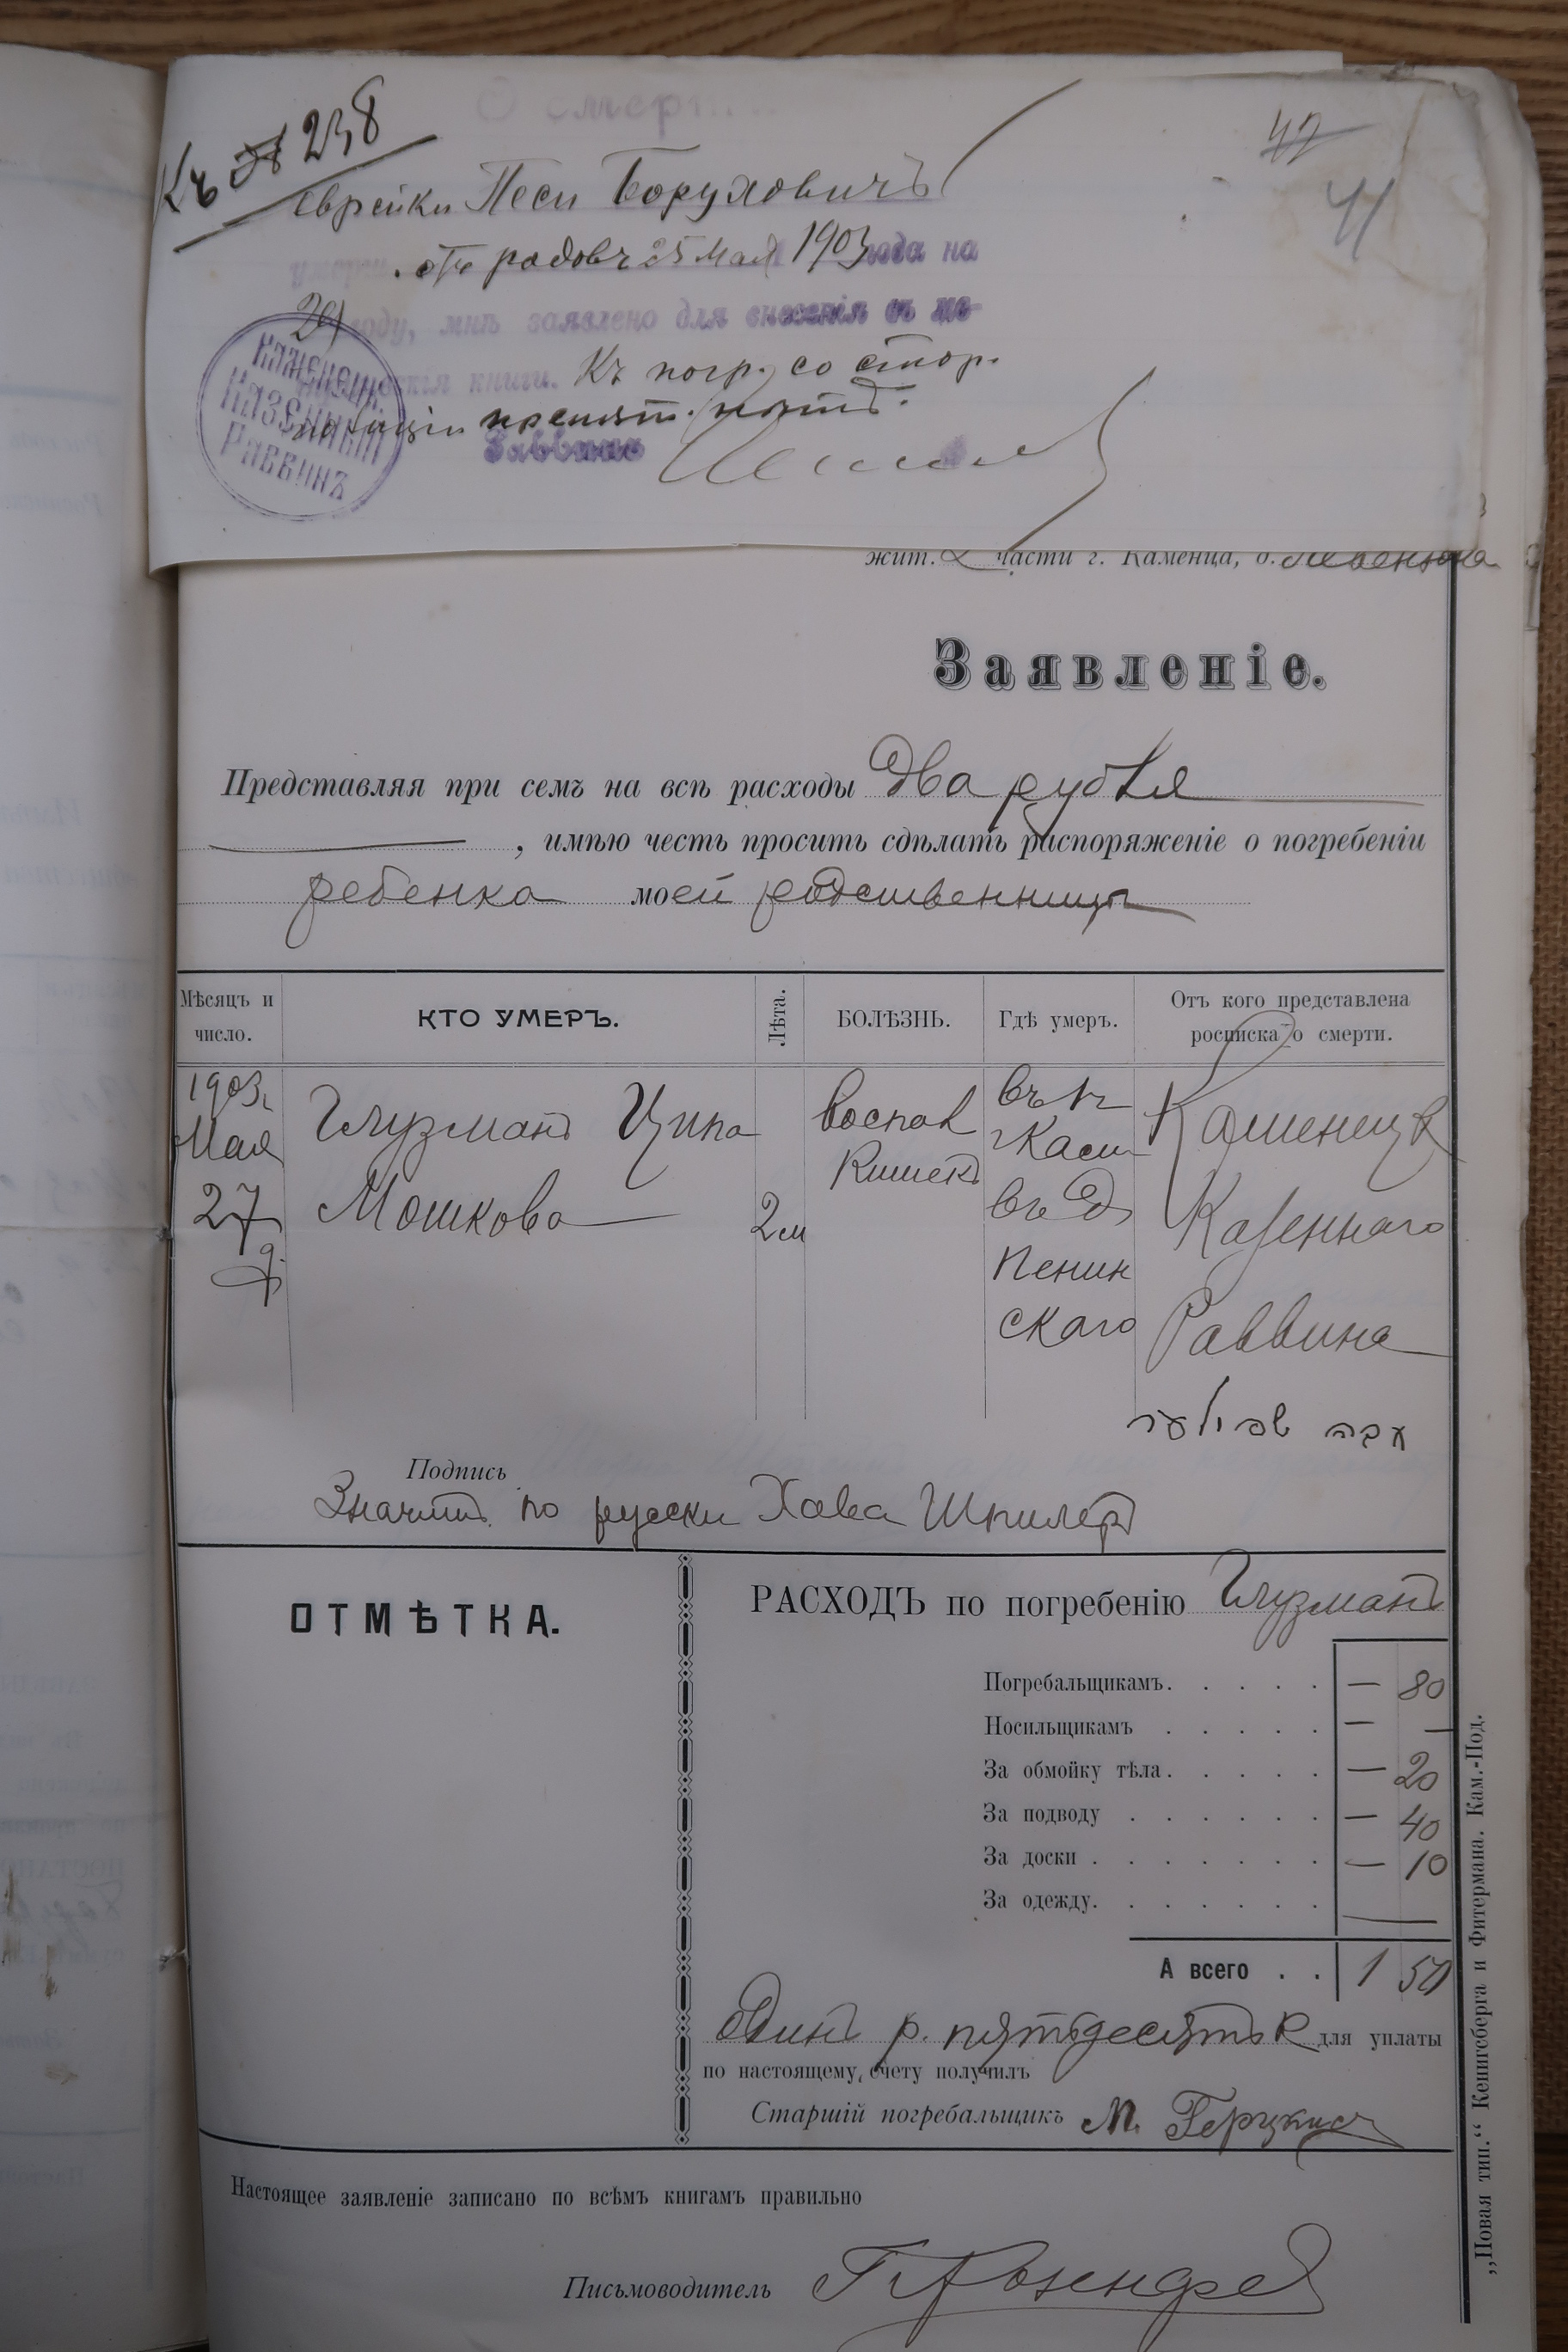 Къ № 238
42
41
О смерт...
еврейки Песи Боруховичъ
отъ родовъ 25 Мая 1903 года на
29 году, мнѣ заявлено для внесенія въ ме-
скія книги. Къ погр. со стор.
полиціи препят. нѣтъ.
Раввинъ
КАМЕНЕЦК.
КАЗЕННЫЙ
РАВВИНЪ
жит. 2 части г. Каменца, д.
Заявленіе.
Представляя при семъ на всѣ расходы два рубля
, имѣю честь просить сдѣлать распоряженіе о погребеніи
ребенка моей родственницы
Мѣсяцъ и число.
КТО УМЕРЪ.
Лѣта.
БОЛѢЗНЬ.
Гдѣ умеръ.
Отъ кого представлена росписка о смерти.
1903 г.
Мая
27
Глузманъ Ципа
Мошкова
2 м
воспал
кишекъ
въ К
въ д
Ленин
скаго
Каменецк
Казеннаго
Раввина
חוה שפילער
Подпись
Значитъ по русски Хава Шпилеръ
ОТМѢТКА.
РАСХОДЪ по погребенію Глузманъ
Погребальщикамъ. — 80
Носильщикамъ — —
За обмойку тѣла. — 20
За подводу — 40
За доски — 10
За одежду. —
А всего 1 50
Одинъ р. пятьдесятъ к для уплаты
по настоящему счету получилъ
Старшій погребальщикъ М.
Настоящее заявленіе записано по всѣмъ книгамъ правильно
Письмоводитель
„Новая тип.“ Кенигсберга и Фитермана. Кам.-Под.